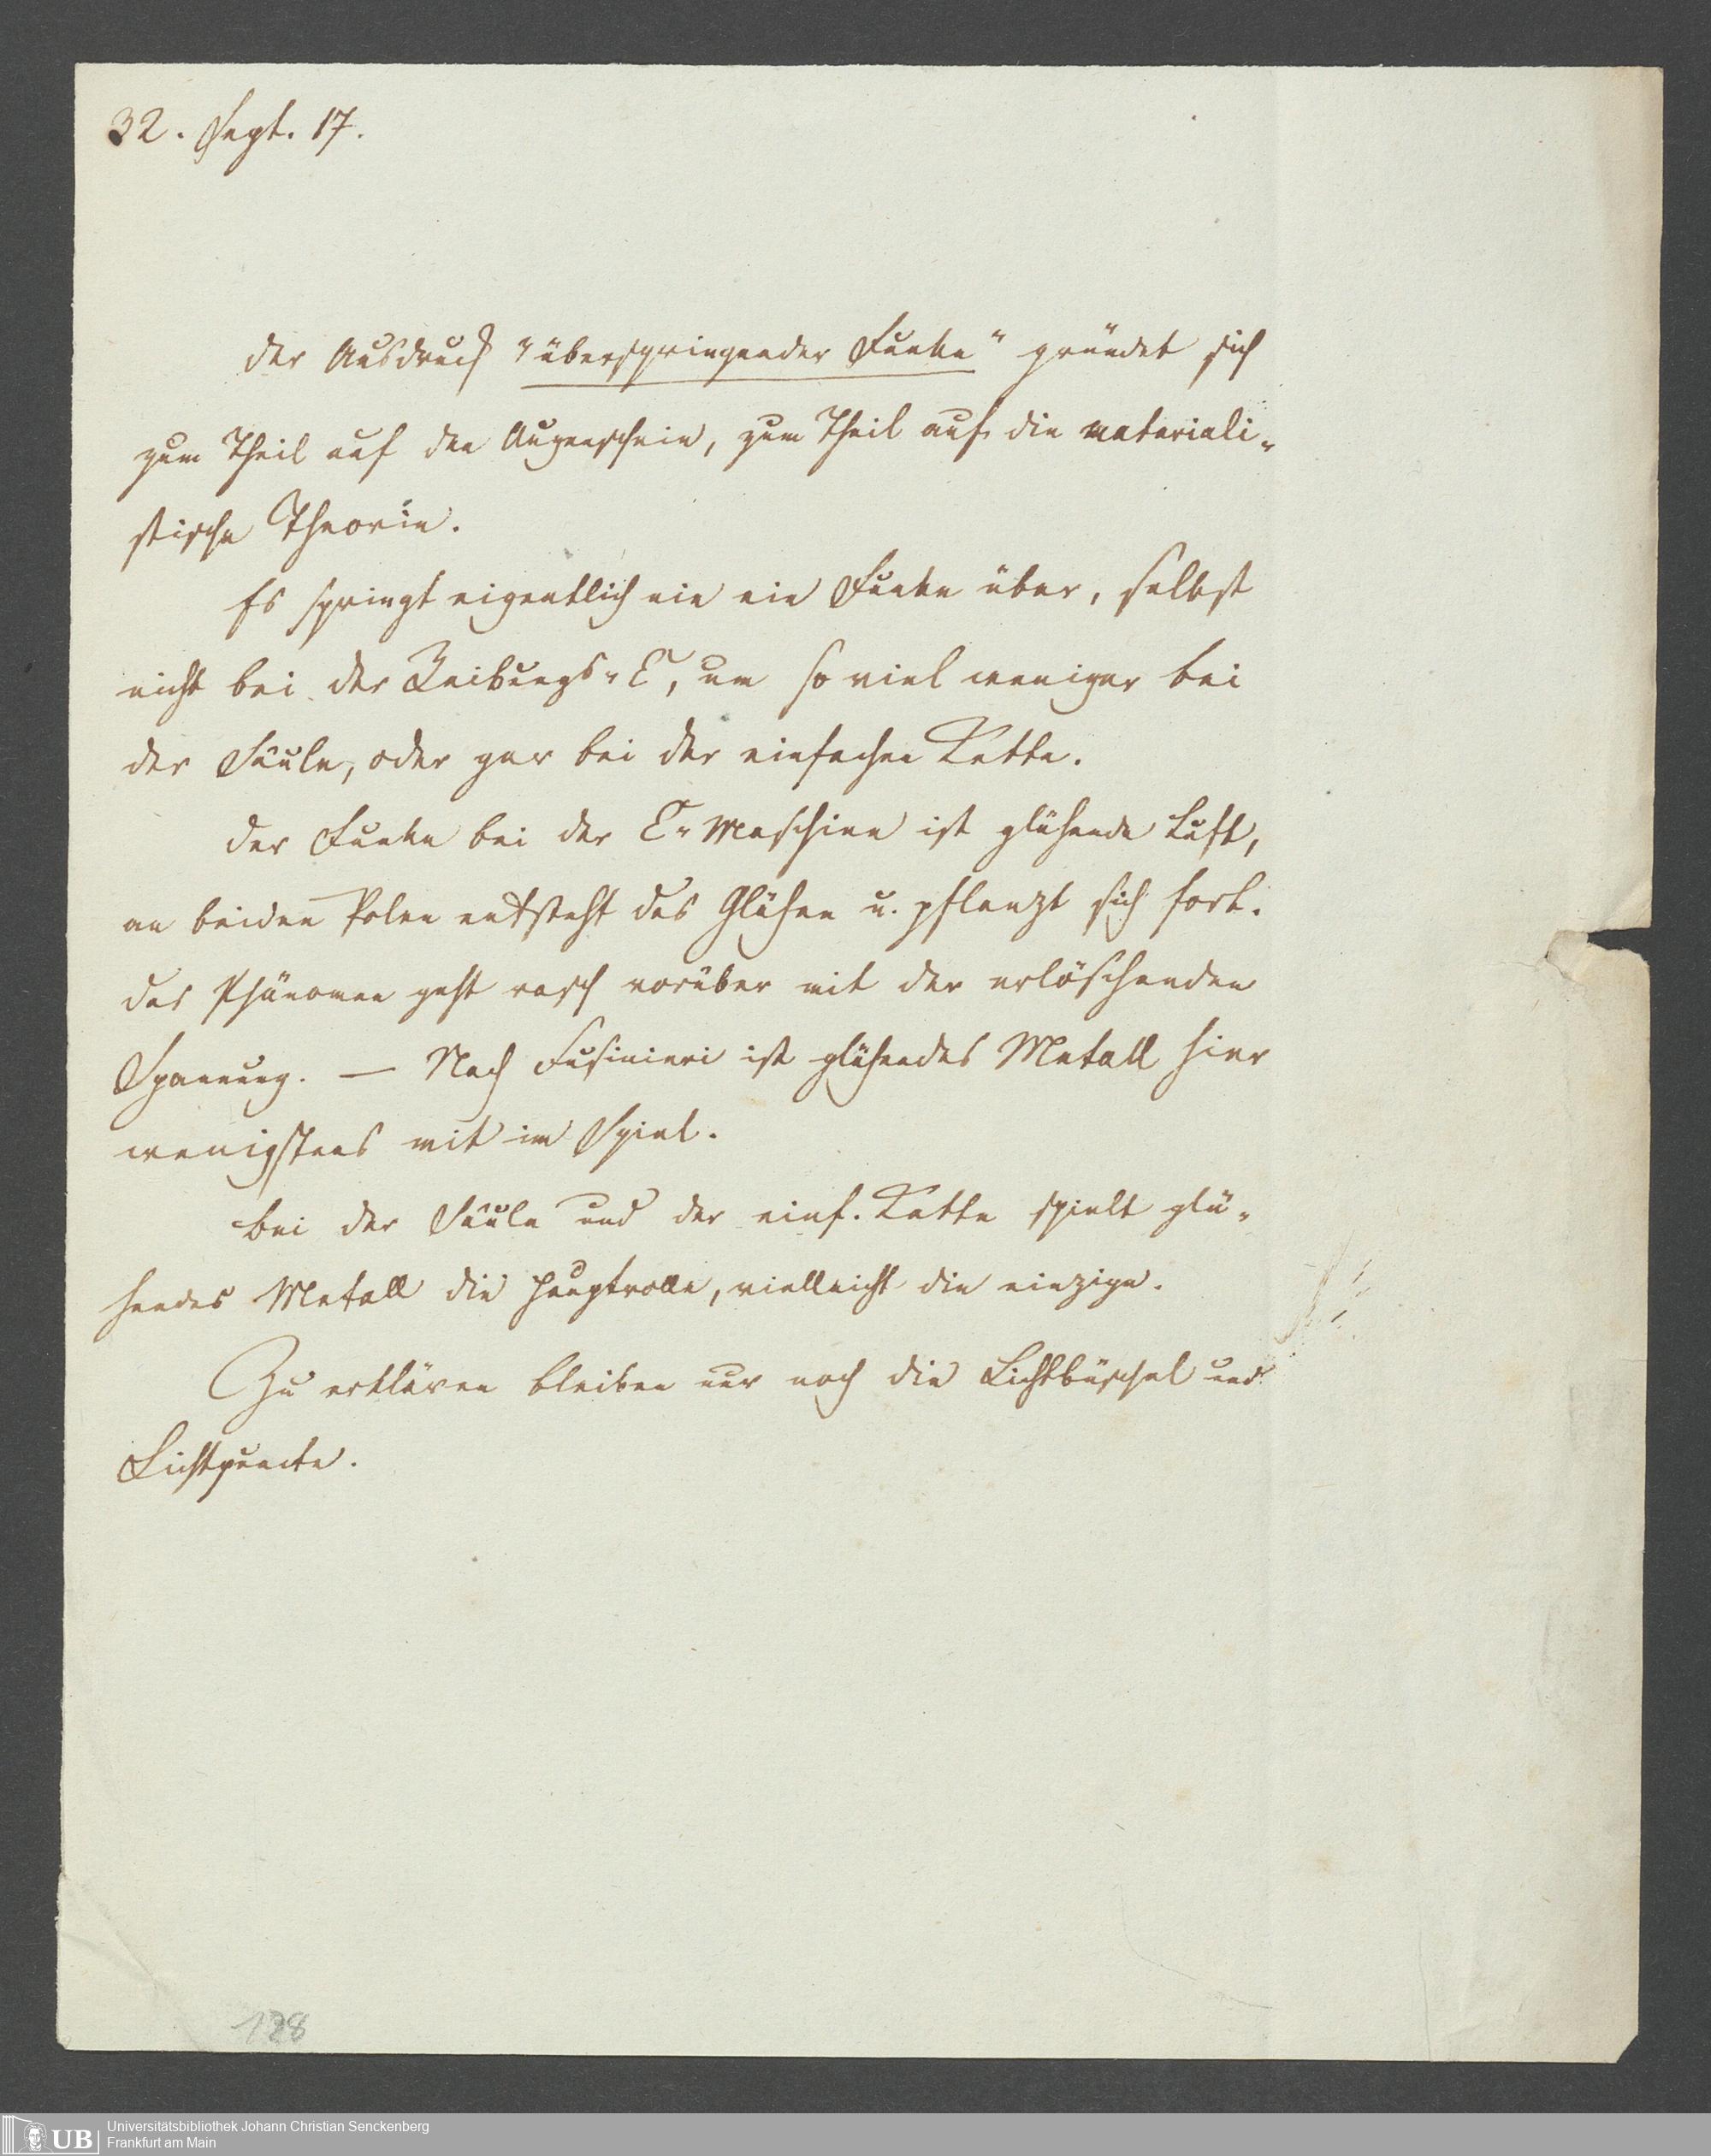 32. Sept. 17.
Der Ausdruck "überspringender Funke" gründet sich
zum Theil auf den Augenschein, zum Theil auf die materiali-
stische Theorie.
Es springt eigentlich nie ein Funke über, selbst
nicht bei der Reibungs-E, um so viel weniger bei
der Säule, oder gar bei der einfachen Kette.
Der Funke bei der E-Maschine ist glühende Luft,
an beiden Polen entsteht das Glühen u. pflanzt sich fort.
Das Phänomen geht rasch vorüber mit der erlöschenden
Spannung. — Nach Fusinieri ist glühendes Metall hier
wenigstens mit im Spiel.
Bei der Säule und der einf. Kette spielt glü-
hendes Metall die Hauptrolle, vielleicht die einzige.
Zu erklären bleiben nur noch die Lichtbüschel und
Lichtpuncte.
128
UB
Universitätsbibliothek Johann Christian Senckenberg
Frankfurt am Main